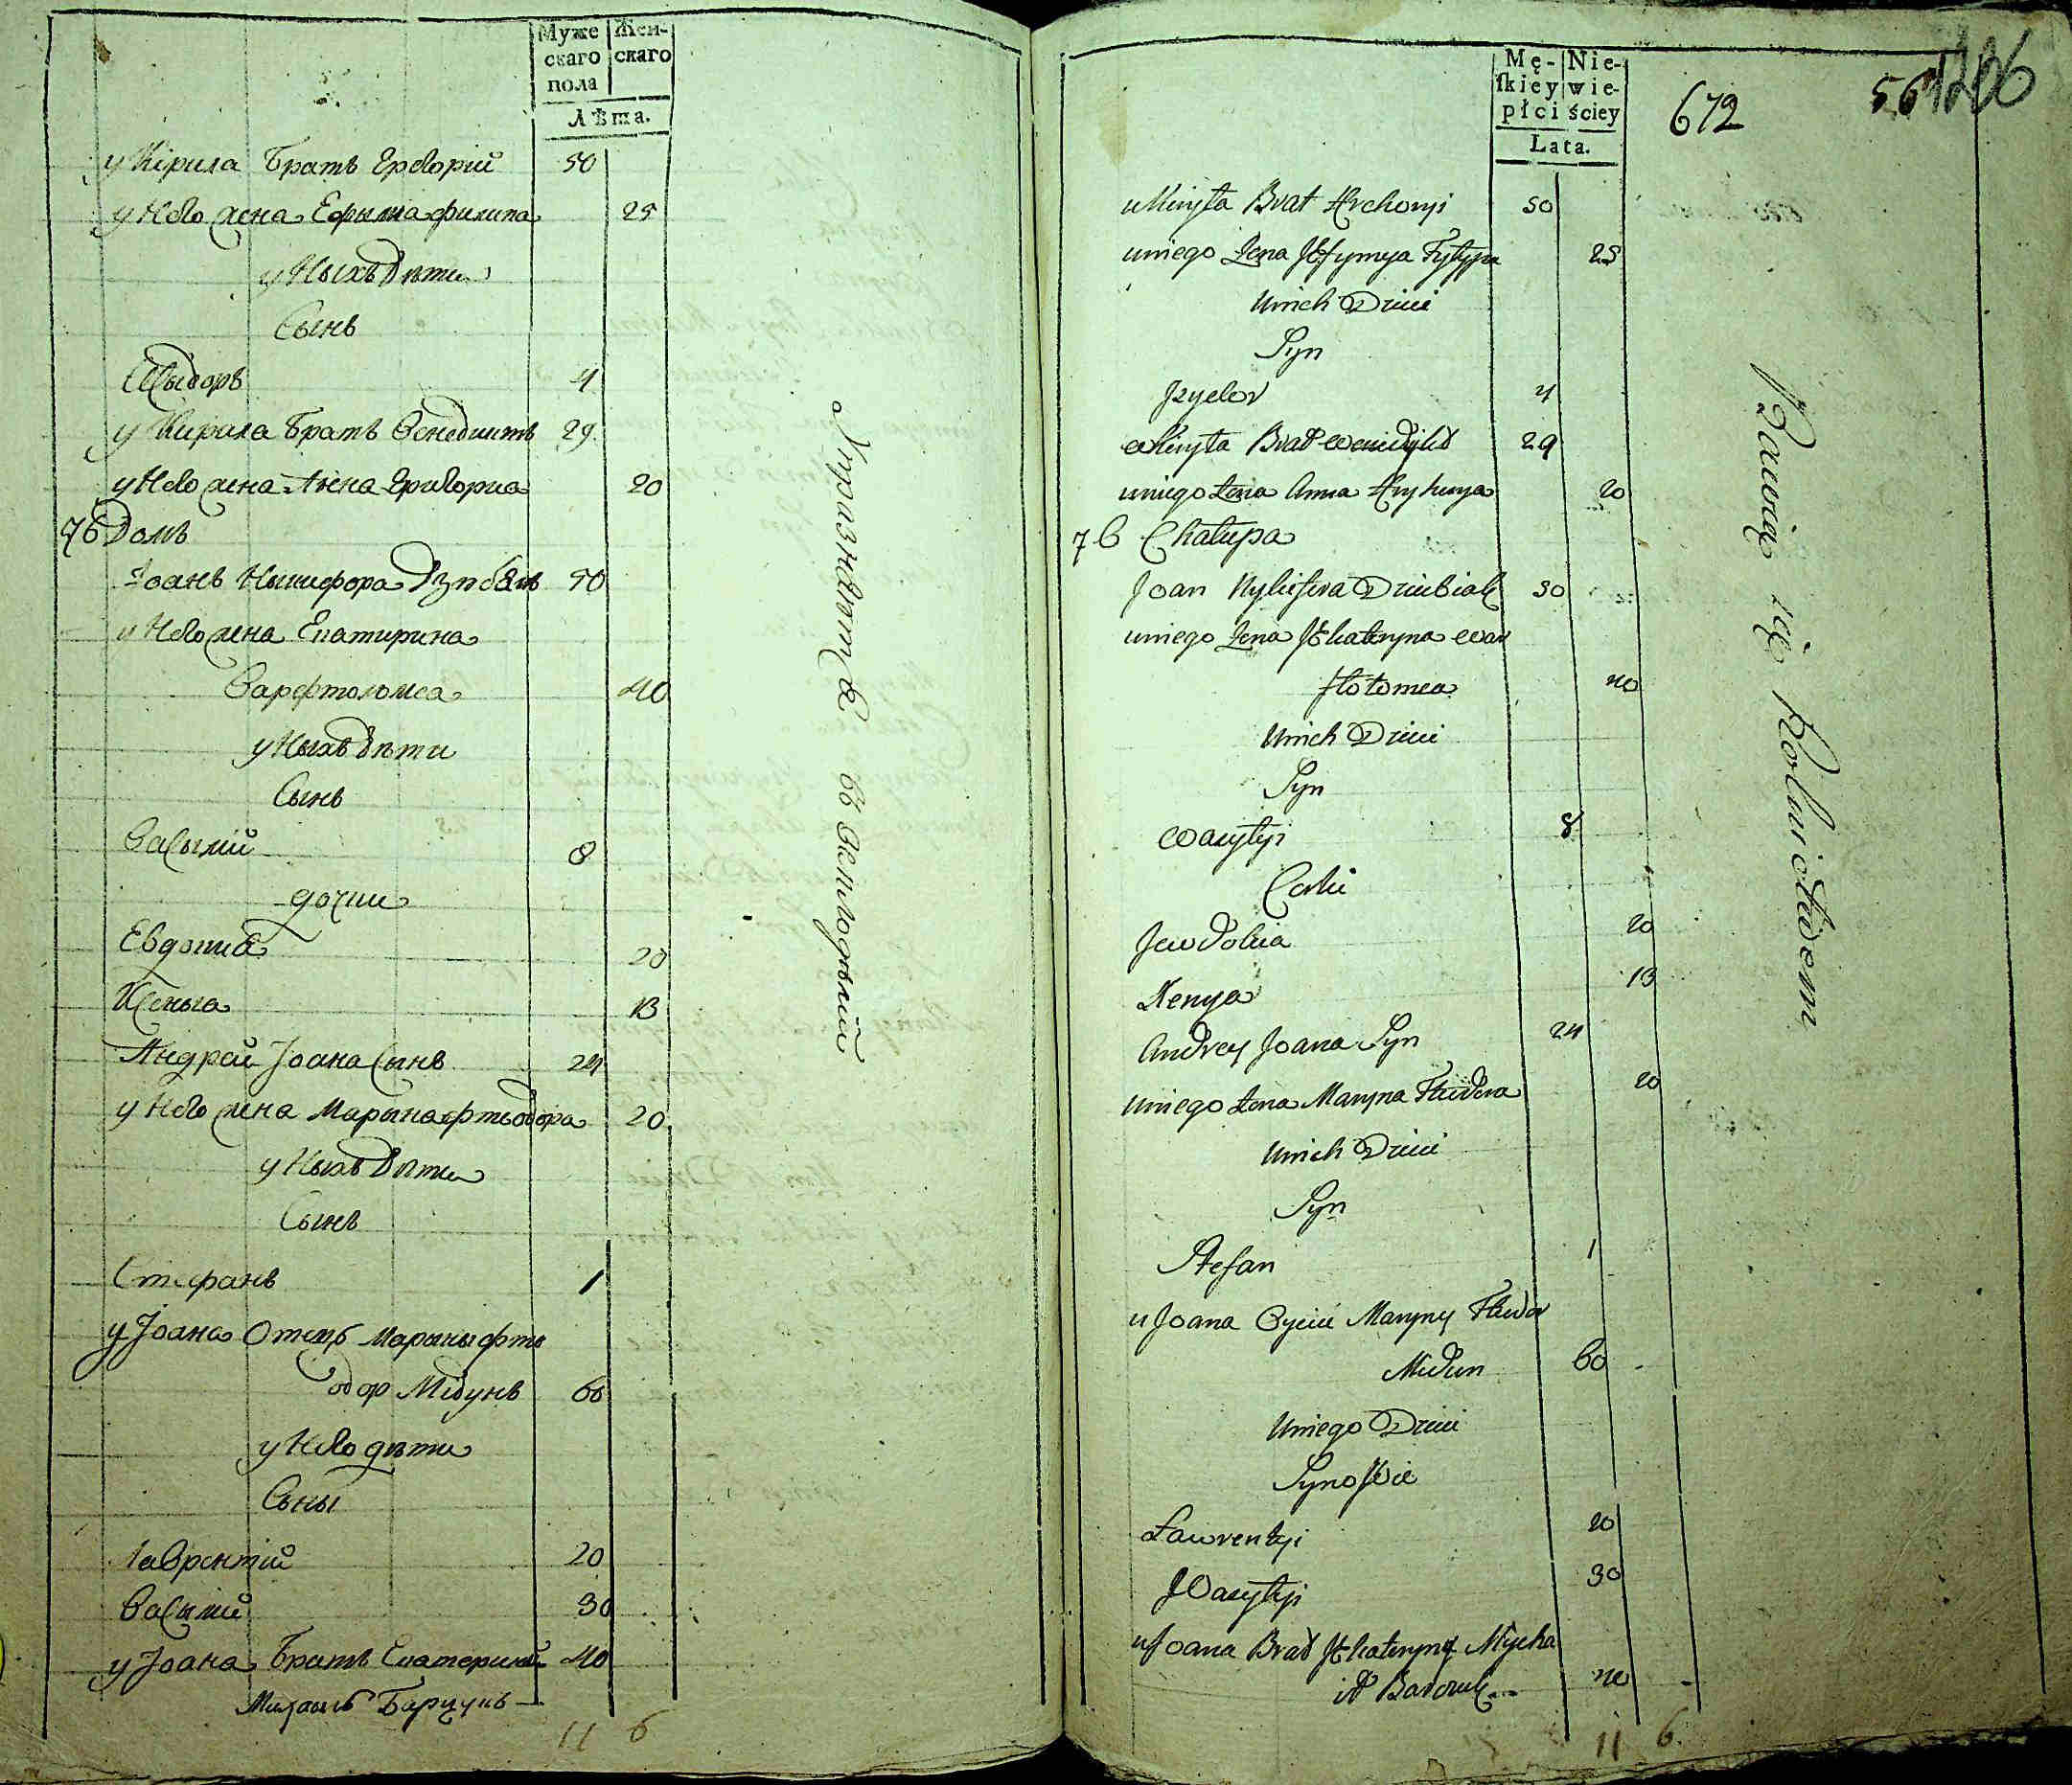 Муже
скаго
пола
Жен-
скаго
Лѣта.
у Кирила Братъ Григорій 50
у Него жена Ефыміа филипа 25
у Ныхъ дѣти
Сынъ
Ісыдоръ 4
у Кирила Братъ Венедиктъ 29
у Него жена Анна Григориа 20
76 Домъ
Іоанъ Никифора Дзюбакъ 50
у Него жена Екатирина
Варфтоломеа 40
у Ныхъ дѣти
Сынъ
Василій 8
дочки
Евдокиа 20
Ксеныа 13
Андрей Іоана Сынъ 24
у Него жена Марына фтеодора 20
у Ныхъ дѣти
Сынъ
Стефанъ 1
у Іоана Отецъ Марыны фте
одор Мѣдунъ 60
у Него дѣти
Сыны
Лаврентій 20
Василій 30
у Іоана Братъ Екатерины 40
Михаилъ Барчукъ
11 6
Упразняются въ Земледѣлій
Mę-
skiey
płci
Nie-
wie-
ściey
Lata.
672
56
1206
u Kiryła Brat Hrehory 50
u niego Żena Jefymya Fylypa 25
U nich Dzieci
Syn
Izydor 4
u Kiryła Brat Wenedykt 29
u niego Żena Anna Hryhorya 20
76 Chałupa
Joan Nykifora Dziubak 50
u niego Żena Jekateryna War
ftołomea 40
U nich Dzieci
Syn
Wasylyi 8
Corki
Jewdokia 20
Xenya 13
Andrey Joana Syn 24
U niego Żena Maryna Fteodora 20
U nich Dzieci
Syn
Stefan 1
u Joana Oyciec Maryny Fteodor
Midun 60
U niego Dzieci
Synowie
Ławrentyi 20
Wasylyi 30
u Joana Brat Jekateryny Mycha
ił Barczuk 40
11 6
Bawią się Rolnictwem